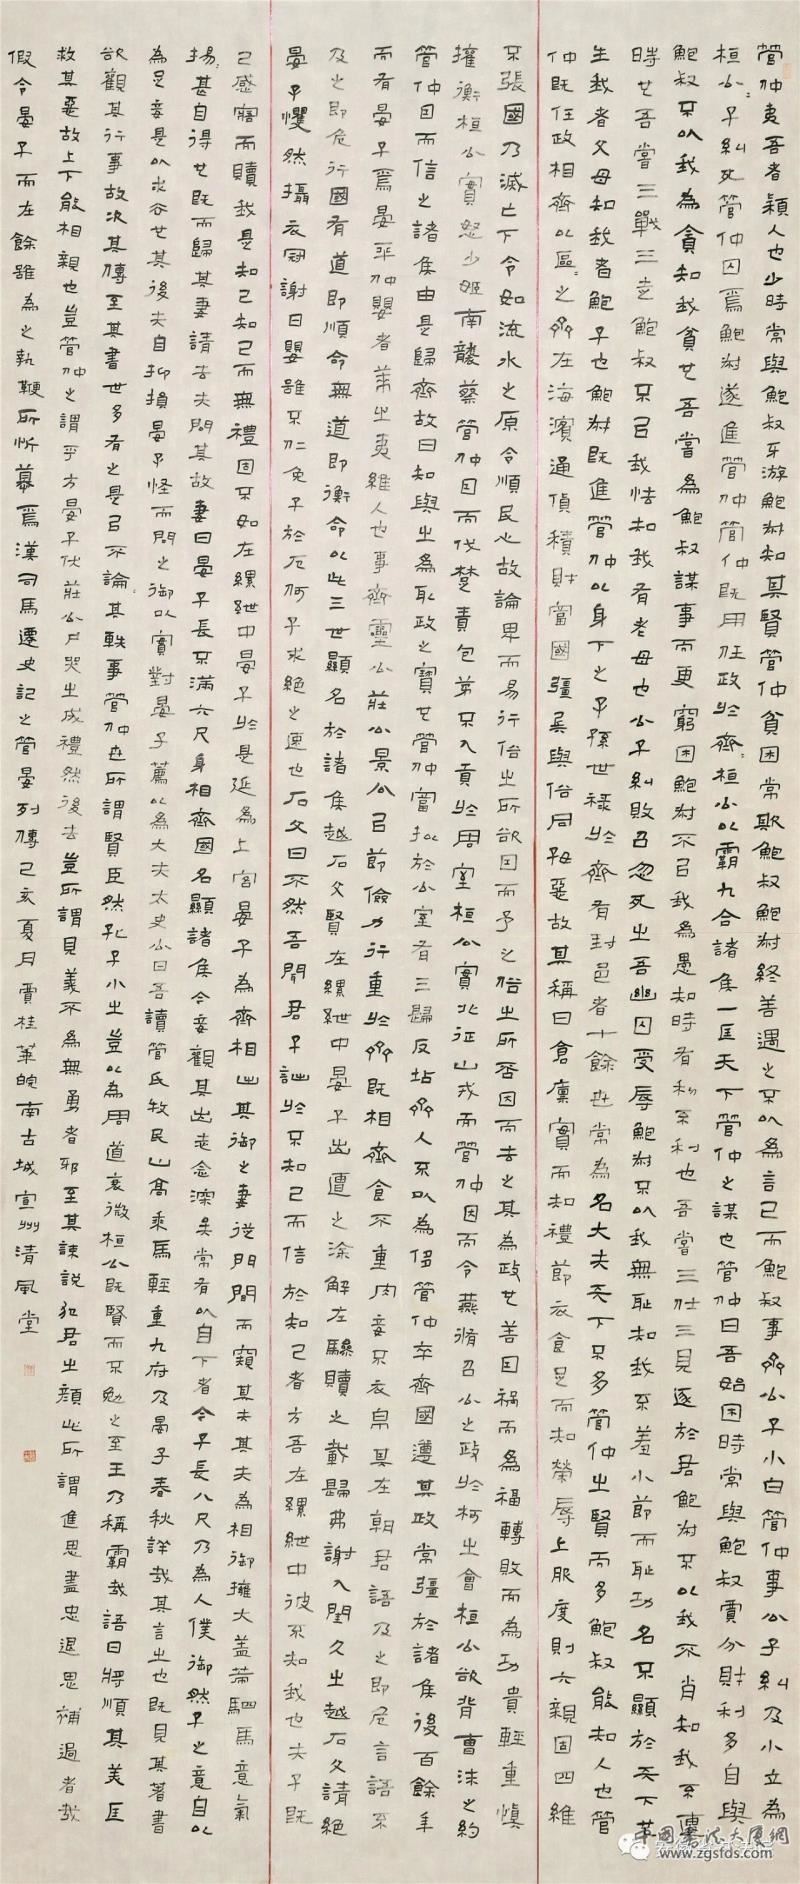 管仲夷吾者潁人也少時常與鮑叔牙游鮑叔知其賢管仲貧困常欺鮑叔鮑叔終善遇之不以為言已而鮑叔事齊公子小白管仲事公子糾及小立為
桓公公子糾死管仲囚焉鮑叔遂進管仲管仲既用任政於齊齊桓公以霸九合諸侯一匡天下管仲之謀也管仲曰吾始困時常與鮑叔賈分財利多自與
鮑叔不以我為貪知我貧也吾嘗為鮑叔謀事而更窮困鮑叔不以我為愚知時有利不利也吾嘗三仕三見逐於君鮑叔不以我不肖知我不遭
時也吾嘗三戰三走鮑叔不以我怯知我有老母也公子糾敗召忽死之吾幽囚受辱鮑叔不以我無恥知我不羞小節而恥功名不顯於天下也
生我者父母知我者鮑子也鮑叔既進管仲以身下之子孫世祿於齊有封邑者十餘世常為名大夫天下不多管仲之賢而多鮑叔能知人也管
仲既任政相齊以區區之齊在海濱通貨積財富國彊兵與俗同好惡故其稱曰倉廩實而知禮節衣食足而知榮辱上服度則六親固四維
不張國乃滅亡下令如流水之原令順民心故論卑而易行俗之所欲因而予之俗之所否因而去之其為政也善因禍而為福轉敗而為功貴輕重慎
權衡桓公實怒少姬南襲蔡管仲因而伐楚責包茅不入貢於周室桓公實北征山戎而管仲因而令燕脩召公之政於柯之會桓公欲背曹沫之約
管仲因而信之諸侯由是歸齊故曰知與之為取政之寶也管仲富擬於公室有三歸反坫齊人不以為侈管仲卒齊國遵其政常彊於諸侯後百餘年
而有晏子焉晏平仲嬰者萊之夷維人也事齊靈公莊公景公以節儉力行重於齊既相齊食不重肉妾不衣帛其在朝君語及之即危言語不
及之即危行國有道即順命無道即衡命以此三世顯名於諸侯越石父賢在縲紲中晏子出遭之涂解左驂贖之載歸弗謝入閨久之越石父請絕
晏子戄然攝衣冠謝曰嬰雖不仁免子於厄何子求絕之速也石父曰不然吾聞君子詘於不知己而信於知己者方吾在縲紲中彼不知我也夫子既
已感寤而贖我是知己知己而無禮固不如在縲紲中晏子於是延為上客晏子為齊相出其御之妻從門閒而窺其夫其夫為相御擁大蓋策駟馬意氣
揚揚甚自得也既而歸其妻請去夫問其故妻曰晏子長不滿六尺身相齊國名顯諸侯今妾觀其出志念深矣常有以自下者今子長八尺乃為人僕御然子之意自以
為足妾是以求去也其後夫自抑損晏子怪而問之御以實對晏子薦以為大夫太史公曰吾讀管氏牧民山高乘馬輕重九府及晏子春秋詳哉其言之也既見其著書
欲觀其行事故次其傳至其書世多有之是以不論論其軼事管仲世所謂賢臣然孔子小之豈以為周道衰微桓公既賢而不勉之至王乃稱霸哉語曰將順其美匡
救其惡故上下能相親也豈管仲之謂乎方晏子伏莊公尸哭之成禮然後去豈所謂見義不為無勇者邪至其諫說犯君之顏此所謂進思盡忠退思補過者哉
假令晏子而在余雖為之執鞭所忻慕焉漢司馬遷史記之管晏列傳己亥夏月賈桂華皖南古城宣州清風堂
中國書法大廈網
www.zgsfds.com